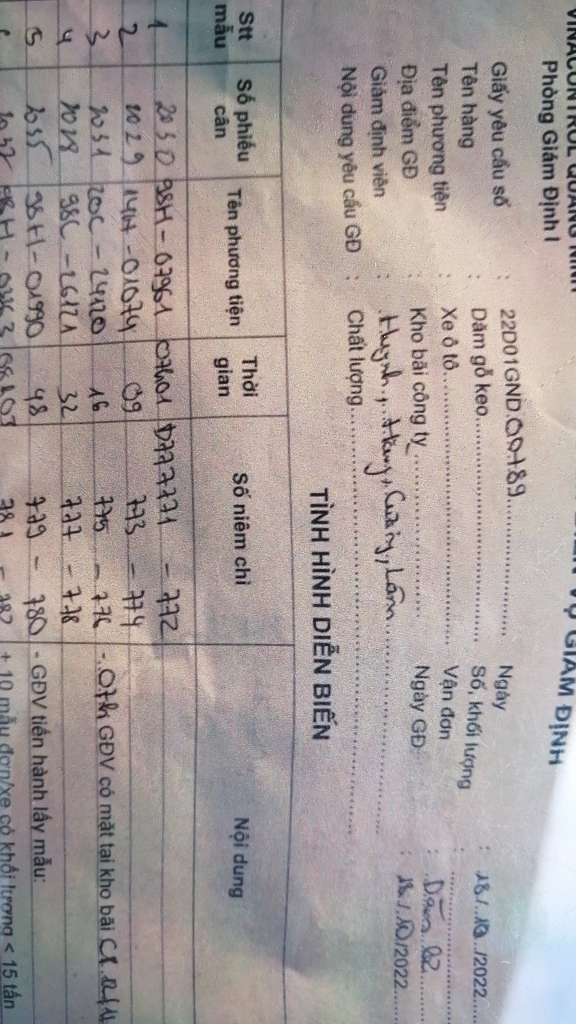 VINACONTROL QUẢNG NINH
Phòng Giám Định I
VỤ GIÁM ĐỊNH
Giấy yêu cầu số : 22D01GND.00789 Ngày : 18/.10../2022
Tên hàng : Dăm gỗ keo Số, khối lượng :
Tên phương tiện : Xe ô tô Vận đơn :
Địa điểm GĐ : Kho bãi công ty Ngày GĐ : 18/.10/2022
Giám định viên : Huynh, Hưng, Cường, Lâm
Nội dung yêu cầu GĐ : Chất lượng
TÌNH HÌNH DIỄN BIẾN
Stt mẫu Số phiếu cân Tên phương tiện Thời gian Số niêm chì Nội dung
1 2030 98H-07961 07h01 D777771 - 772
2 2029 14H-01074 09 773 - 774
3 2031 20C-24120 16 775 - 776 - 07h GĐV có mặt tại kho bãi
4 2028 98C-26121 32 777 - 778
5 2035 98H-01990 48 779 - 780 - GĐV tiến hành lấy mẫu:
781 - 782 + 10 mẫu đơn/xe có khối lượng < 15 tấn